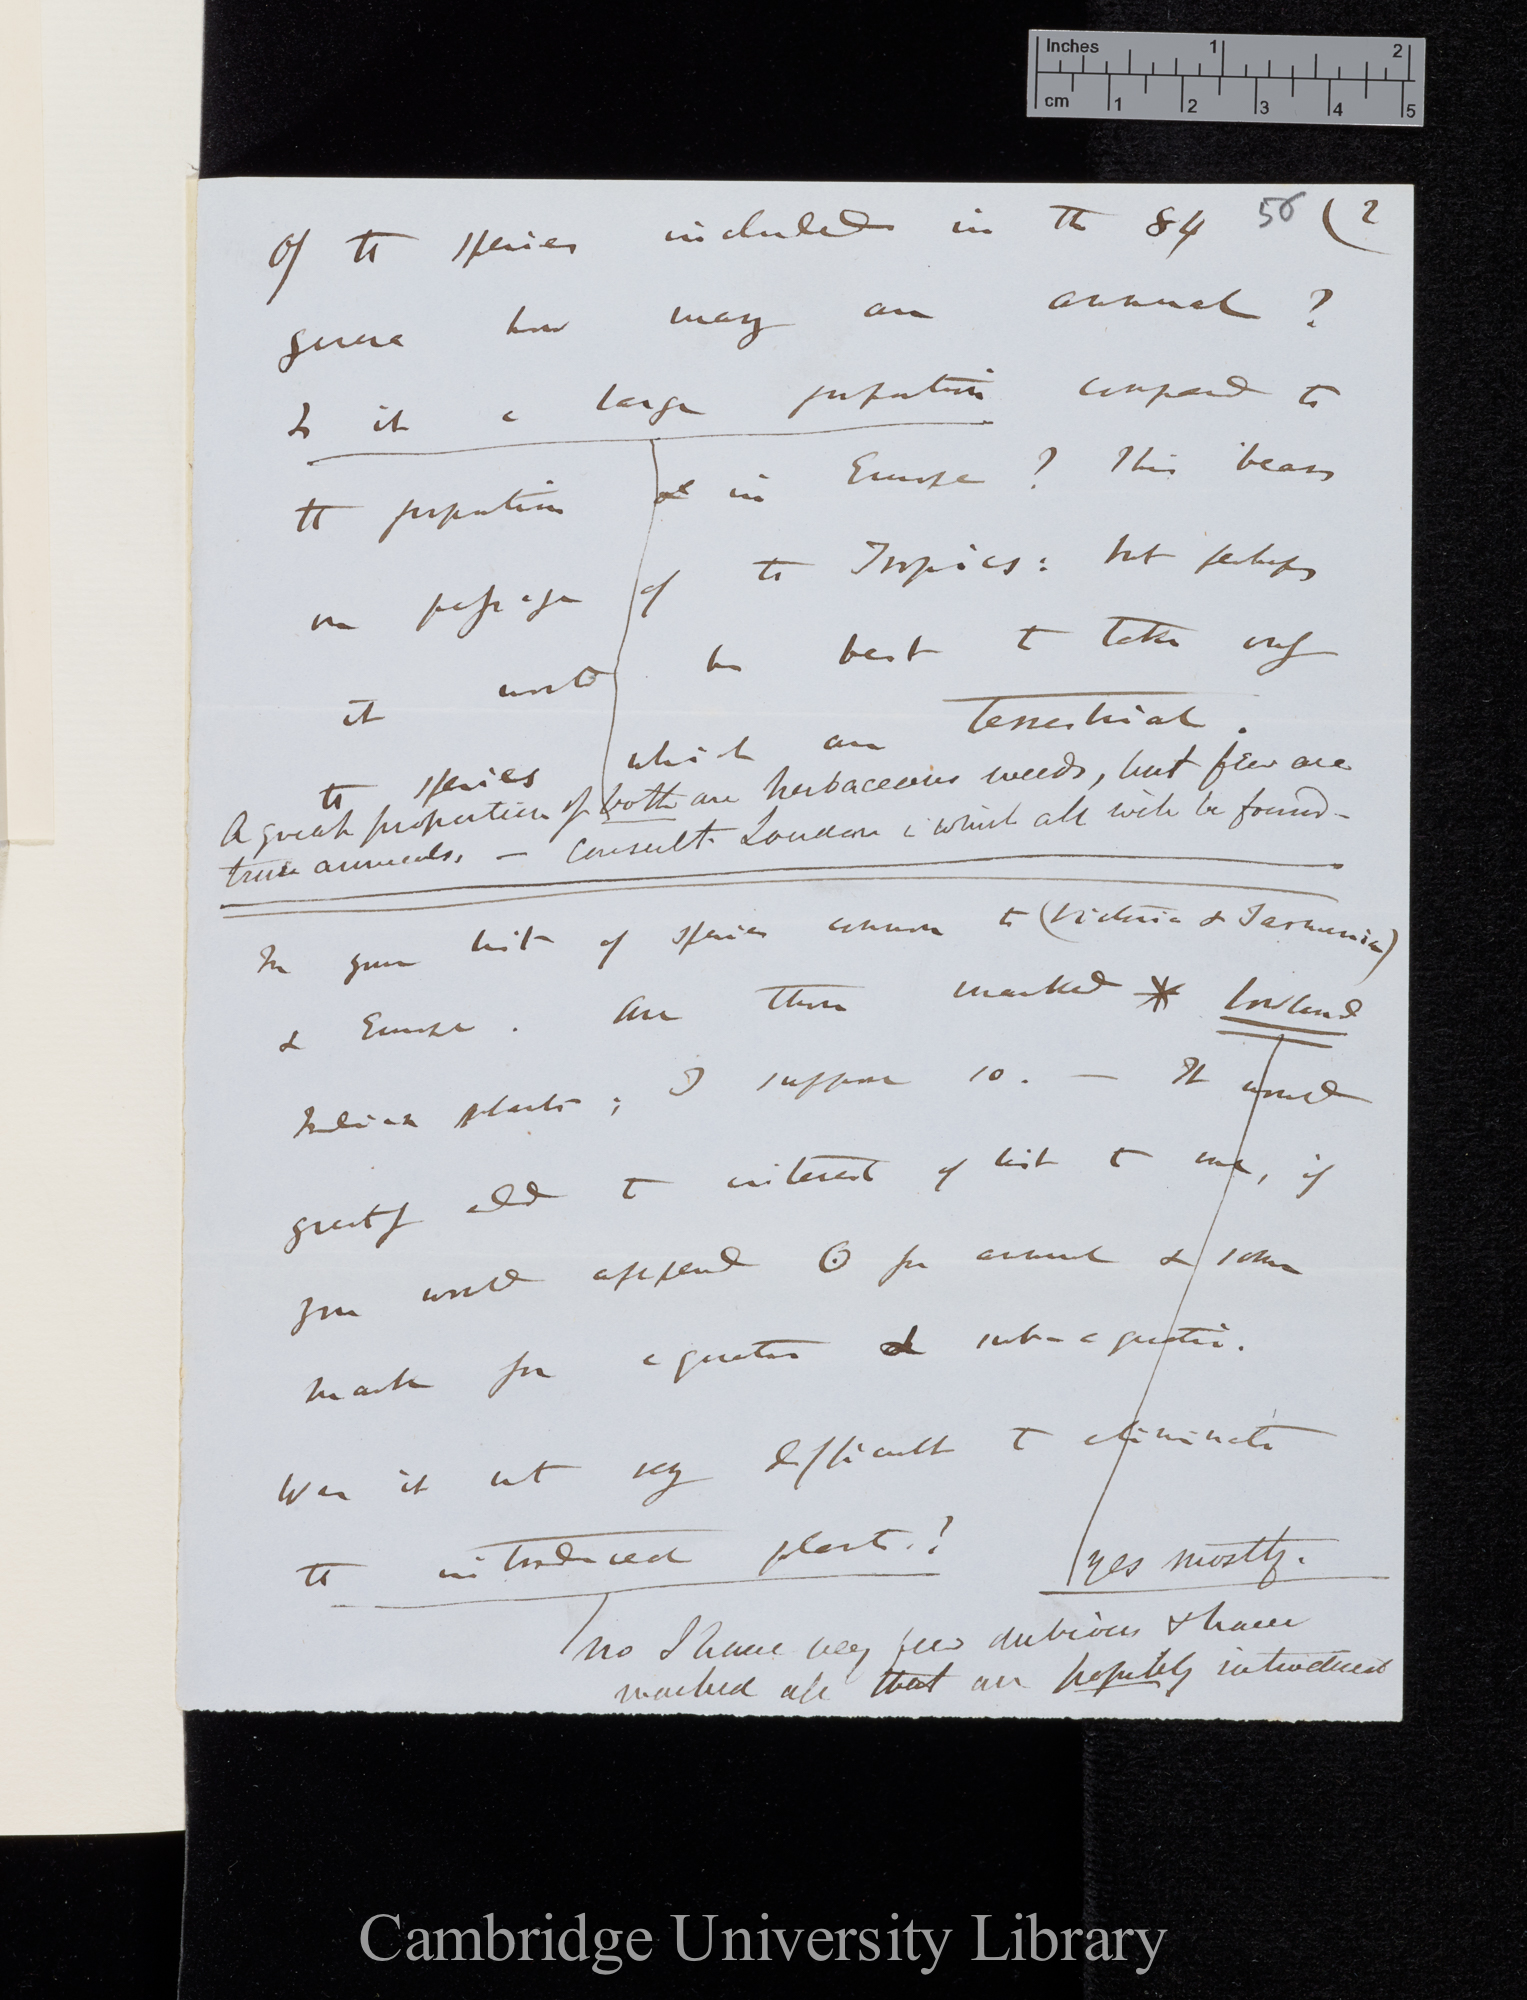 Inches 1 2
cm 1 2 3 4 5
56 (2
Of the species included in the 84
genera how many are annual?
Is it a large proportion compared to
the proportion in Europe? This bears
on passage of the Tropics: but perhaps
it would be best to take only
the species which are terrestrial.
A great proportion of both are herbaceous weeds, but few are
true annuals. — Consult Loudon in which all will be found—
In your list of species common to (Victoria & Tasmania)
& Europe. Are those marked * lowland
Indian plants; I suppose so. — It would
greatly add to interest of list to me, if
you would append ☉ for annual & some
mark for aquatic & sub-aquatic.
Was it not very difficult to eliminate
the introduced plants?
yes mostly.
no I have very few dubious & have
marked all that are possibly introduced
Cambridge University Library